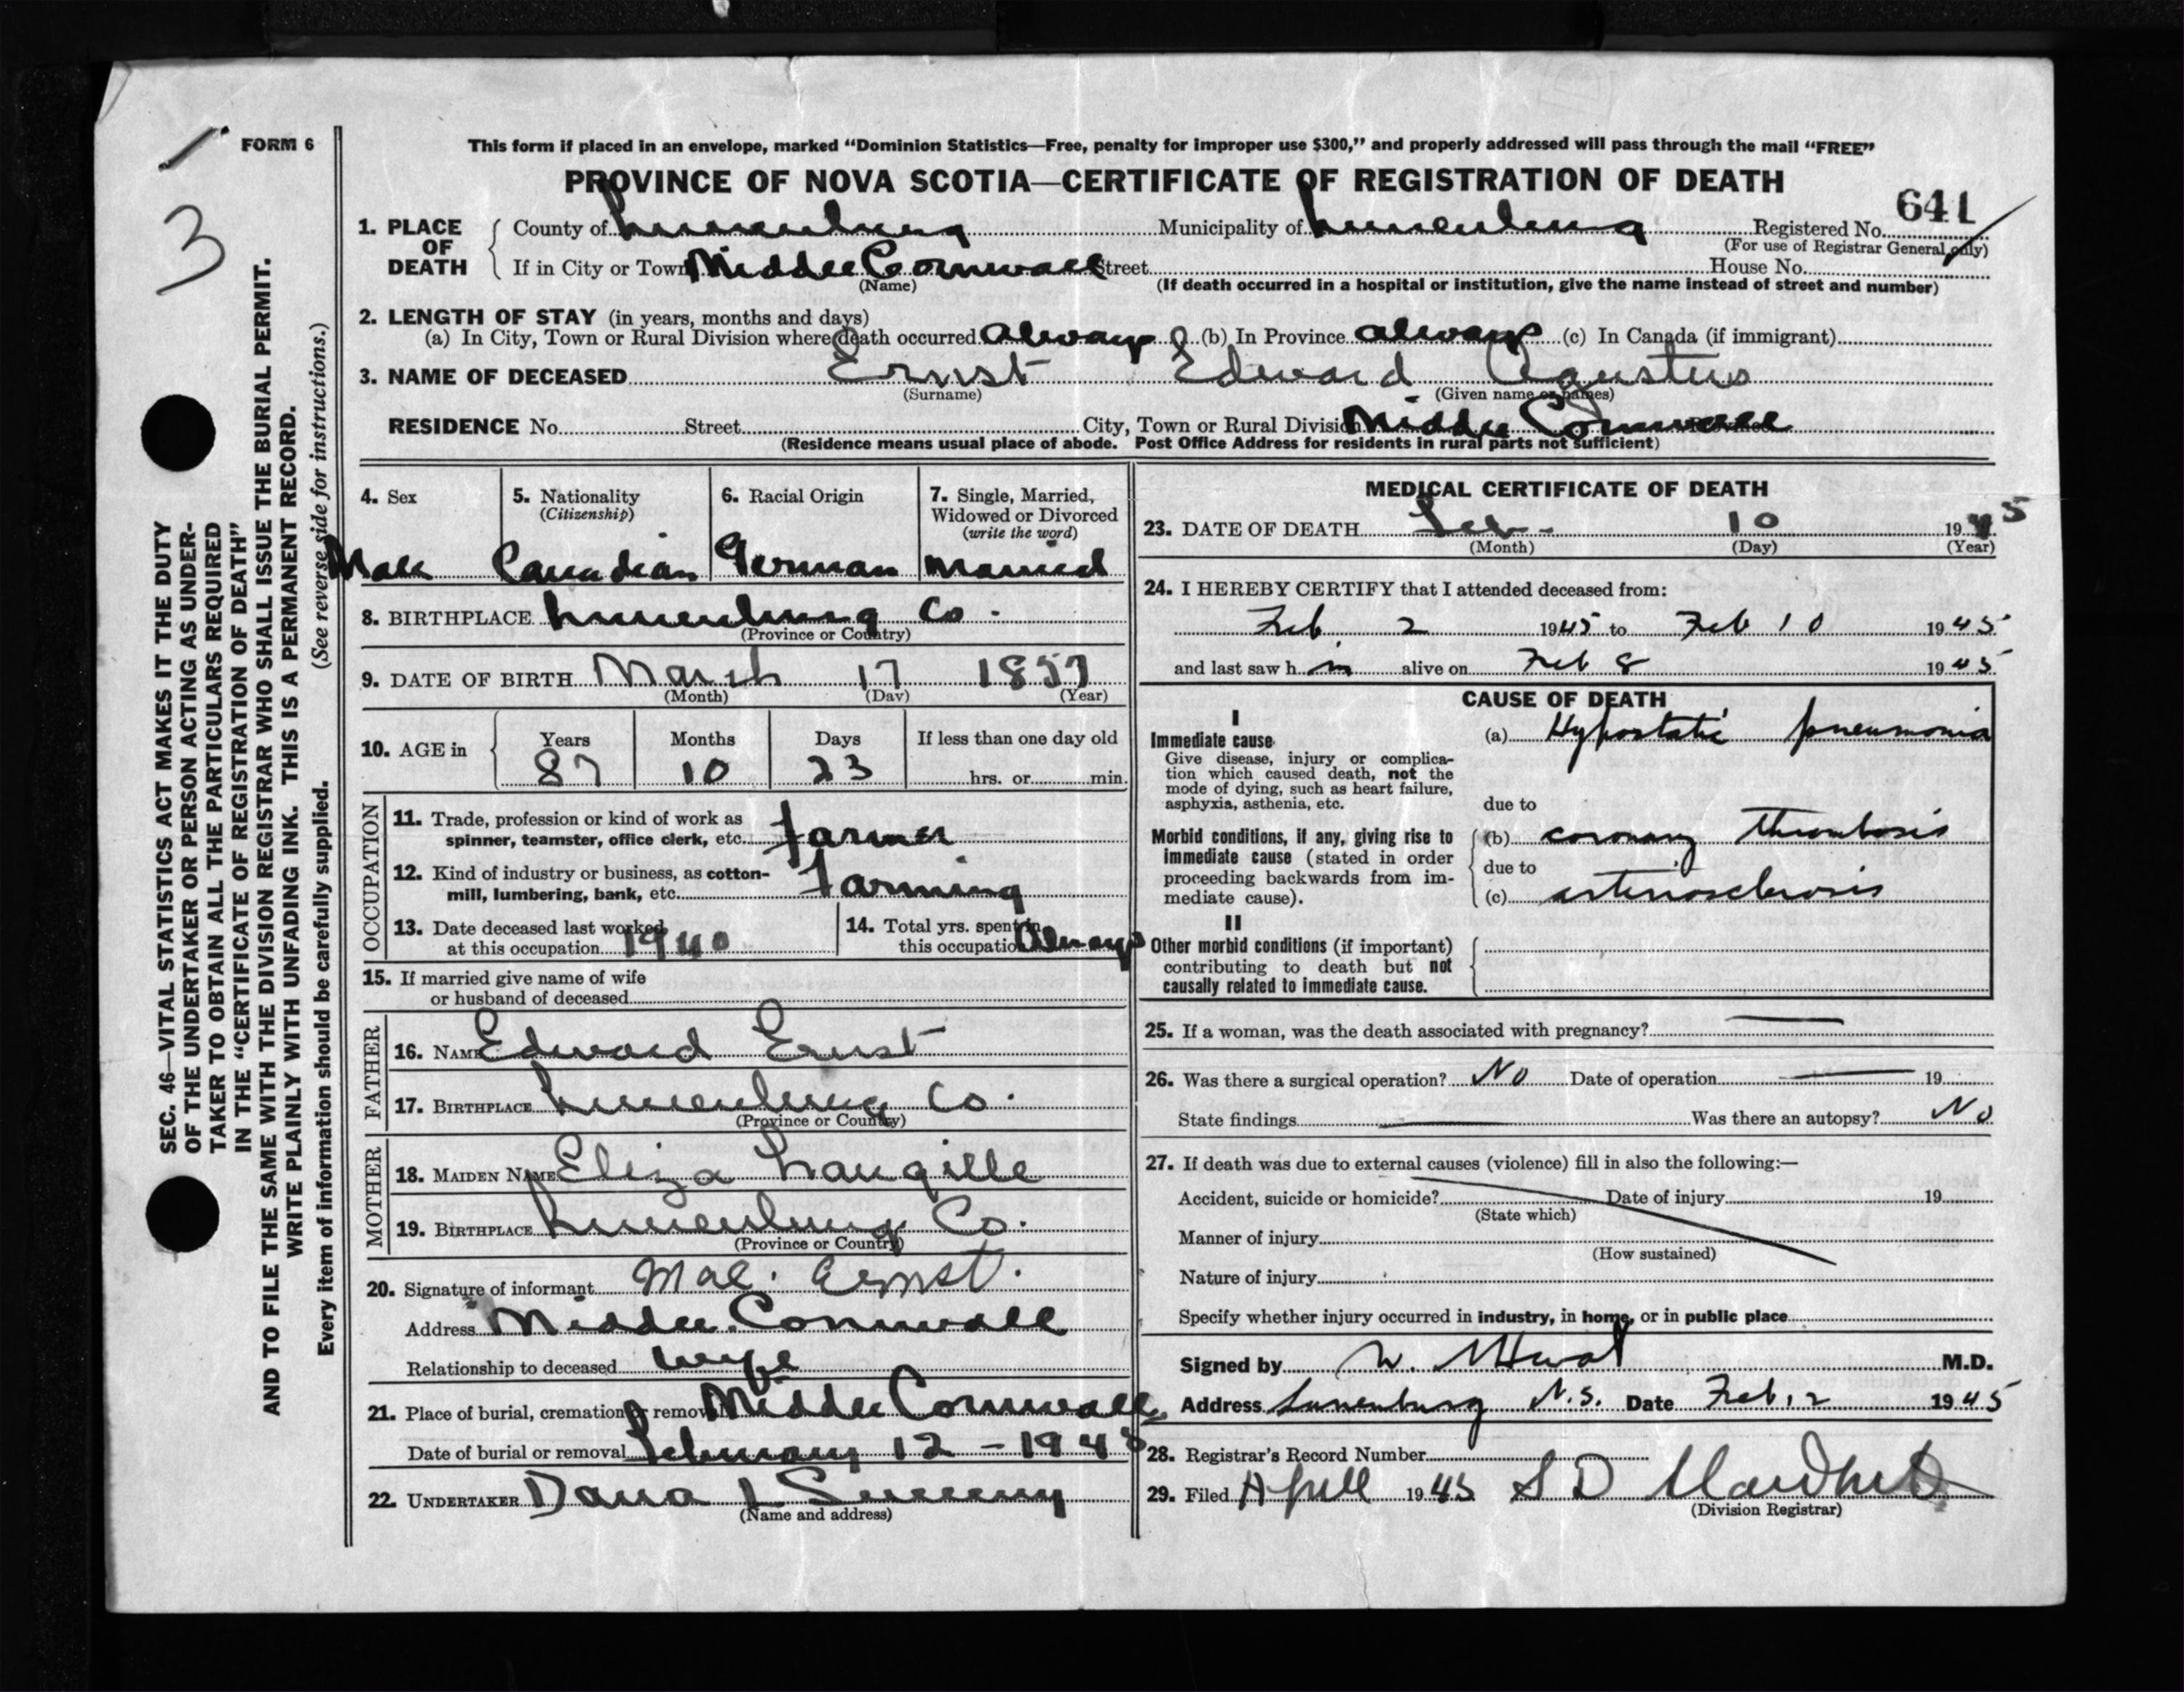 FORM 6
3
This form if placed in an envelope, marked "Dominion Statistics—Free, penalty for improper use $300," and properly addressed will pass through the mail "FREE"
PROVINCE OF NOVA SCOTIA—CERTIFICATE OF REGISTRATION OF DEATH
641
1. PLACE OF DEATH County of Lunenburg Municipality of Lunenburg Registered No.
(For use of Registrar General only)
If in City or Town Middle Cornwall Street House No.
(Name) (If death occurred in a hospital or institution, give the name instead of street and number)
2. LENGTH OF STAY (in years, months and days)
(a) In City, Town or Rural Division where death occurred Always (b) In Province always (c) In Canada (if immigrant)
3. NAME OF DECEASED Ernst Edward Agustus
(Surname) (Given name or names)
RESIDENCE No. Street City, Town or Rural Division Middle Cornwall
(Residence means usual place of abode. Post Office Address for residents in rural parts not sufficient)
4. Sex
Male
5. Nationality
(Citizenship)
Canadian
6. Racial Origin
German
7. Single, Married,
Widowed or Divorced
(write the word)
Married
8. BIRTHPLACE Lunenburg Co.
(Province or Country)
9. DATE OF BIRTH March 17 1857
(Month) (Day) (Year)
10. AGE in Years Months Days If less than one day old
87 10 23 hrs. or min.
OCCUPATION
11. Trade, profession or kind of work as
spinner, teamster, office clerk, etc. Farmer
12. Kind of industry or business, as cotton-
mill, lumbering, bank, etc. Farming
13. Date deceased last worked
at this occupation 1940
14. Total yrs. spent in
this occupation Always
15. If married give name of wife
or husband of deceased
FATHER
16. NAME Edward Ernst
17. BIRTHPLACE Lunenburg Co.
(Province or Country)
MOTHER
18. MAIDEN NAME Eliza Langille
19. BIRTHPLACE Lunenburg Co.
(Province or Country)
20. Signature of informant Ernst.
Address Middle Cornwall
Relationship to deceased wife
21. Place of burial, cremation or removal Middle Cornwall
Date of burial or removal February 12 - 1945
22. UNDERTAKER Dana L Sweeny
(Name and address)
MEDICAL CERTIFICATE OF DEATH
23. DATE OF DEATH Feb- 10 1945
(Month) (Day) (Year)
24. I HEREBY CERTIFY that I attended deceased from:
Feb 2 1945 to Feb 10 1945
and last saw h im alive on Feb 8 1945
CAUSE OF DEATH
I
Immediate cause
Give disease, injury or complica-
tion which caused death, not the
mode of dying, such as heart failure,
asphyxia, asthenia, etc.
(a) Hypostatic pneumonia
due to
Morbid conditions, if any, giving rise to
immediate cause (stated in order
proceeding backwards from im-
mediate cause).
(b) coronary thrombosis
due to
(c) arteriosclerosis
II
Other morbid conditions (if important)
contributing to death but not
causally related to immediate cause.
25. If a woman, was the death associated with pregnancy? —
26. Was there a surgical operation? No Date of operation — 19
State findings — Was there an autopsy? No
27. If death was due to external causes (violence) fill in also the following:—
Accident, suicide or homicide? Date of injury 19
(State which)
Manner of injury
(How sustained)
Nature of injury
Specify whether injury occurred in industry, in home, or in public place
Signed by M.D.
Address Lunenburg N.S. Date Feb. 12 1945
28. Registrar's Record Number
29. Filed 1945 S D
(Division Registrar)
SEC. 46—VITAL STATISTICS ACT MAKES IT THE DUTY
OF THE UNDERTAKER OR PERSON ACTING AS UNDER-
TAKER TO OBTAIN ALL THE PARTICULARS REQUIRED
IN THE "CERTIFICATE OF REGISTRATION OF DEATH"
AND TO FILE THE SAME WITH THE DIVISION REGISTRAR WHO SHALL ISSUE THE BURIAL PERMIT.
WRITE PLAINLY WITH UNFADING INK. THIS IS A PERMANENT RECORD.
Every item of information should be carefully supplied. (See reverse side for instructions.)